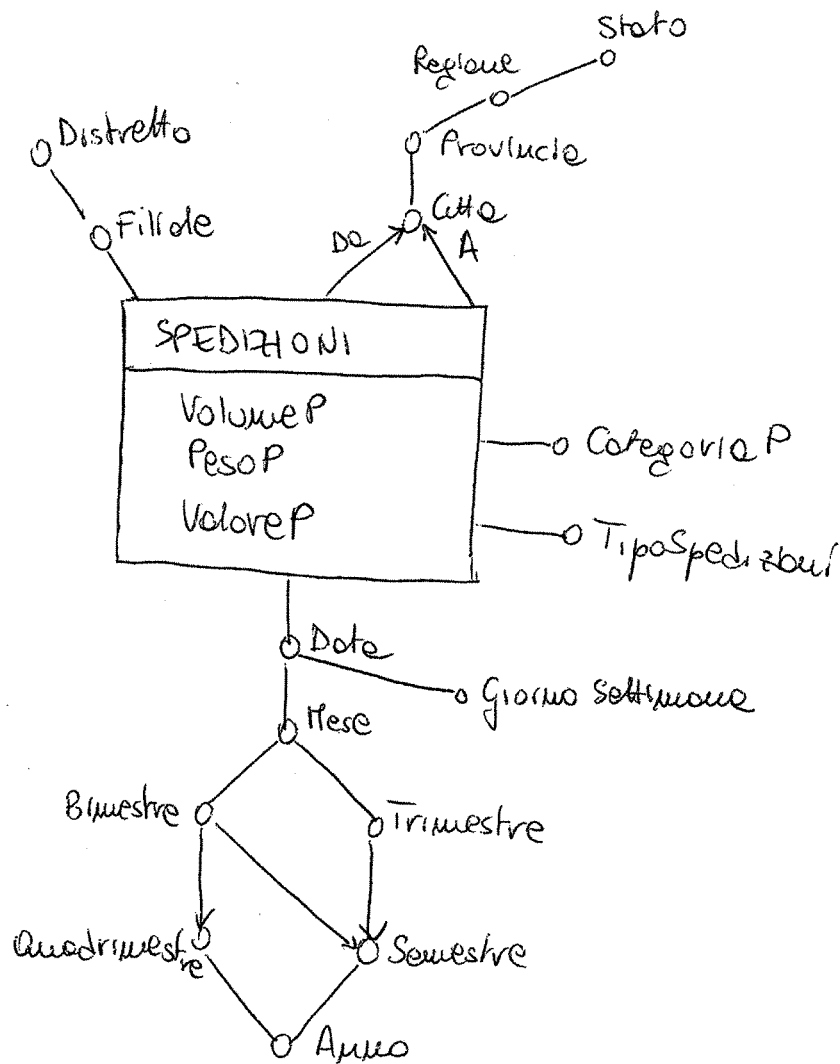 Stato
Regione
Distretto
Provincia
Filiale
Città
Da
A
SPEDIZIONI
VolumeP
PesoP
ValoreP
CategoriaP
TipoSpedizioni
Data
Giorno Settimana
Mese
Bimestre
Trimestre
Quadrimestre
Semestre
Anno